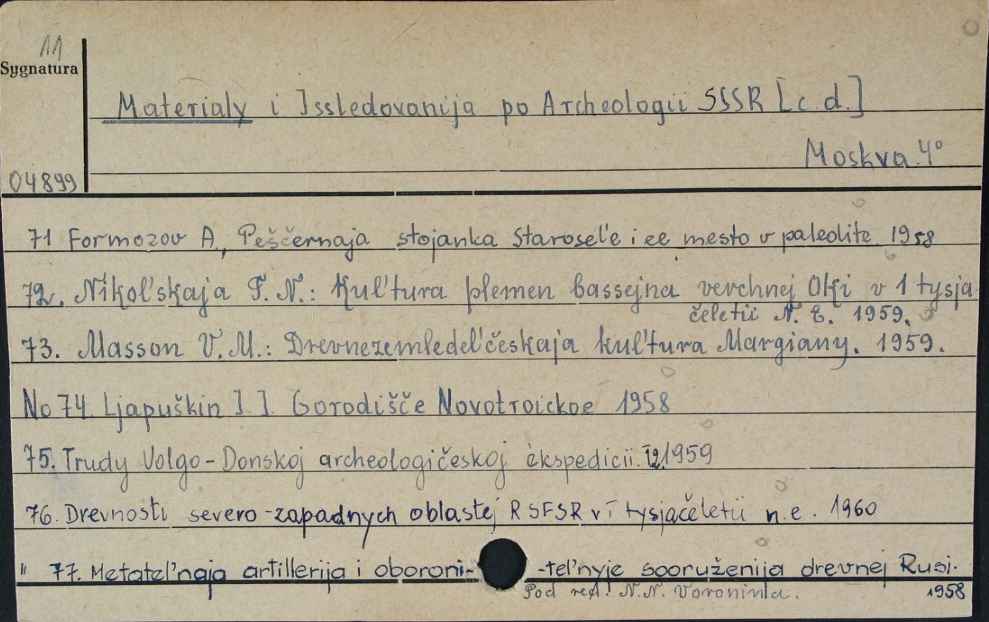 11
Sygnatura
Materialy i Issledovanija po Archeologii SSSR [c. d.]
Moskva 4°
04899
71 Formozov A., Peščernaja stojanka Starosel'e i ee mesto v paleolite 1958
72. Nikol'skaja T. N.: Kul'tura plemen bassejna verchnej Oki v 1 tysja
čeletii N. E. 1959.
73. Masson V. M.: Drevnezemledel'českaja kul'tura Margiany. 1959.
No 74. Ljapuškin I. I. Gorodišče Novotroickoe 1958
75. Trudy Volgo-Donskoj archeologičeskoj ekspedicii. T. 2. 1959
76. Drevnosti severo-zapadnych oblastej RSFSR v I tysjačeletii n.e. 1960
" 77. Metatel'naja artillerija i oboroni- -tel'nyje sooruženija drevnej Rusi.
Pod red. N. N. Voronina. 1958